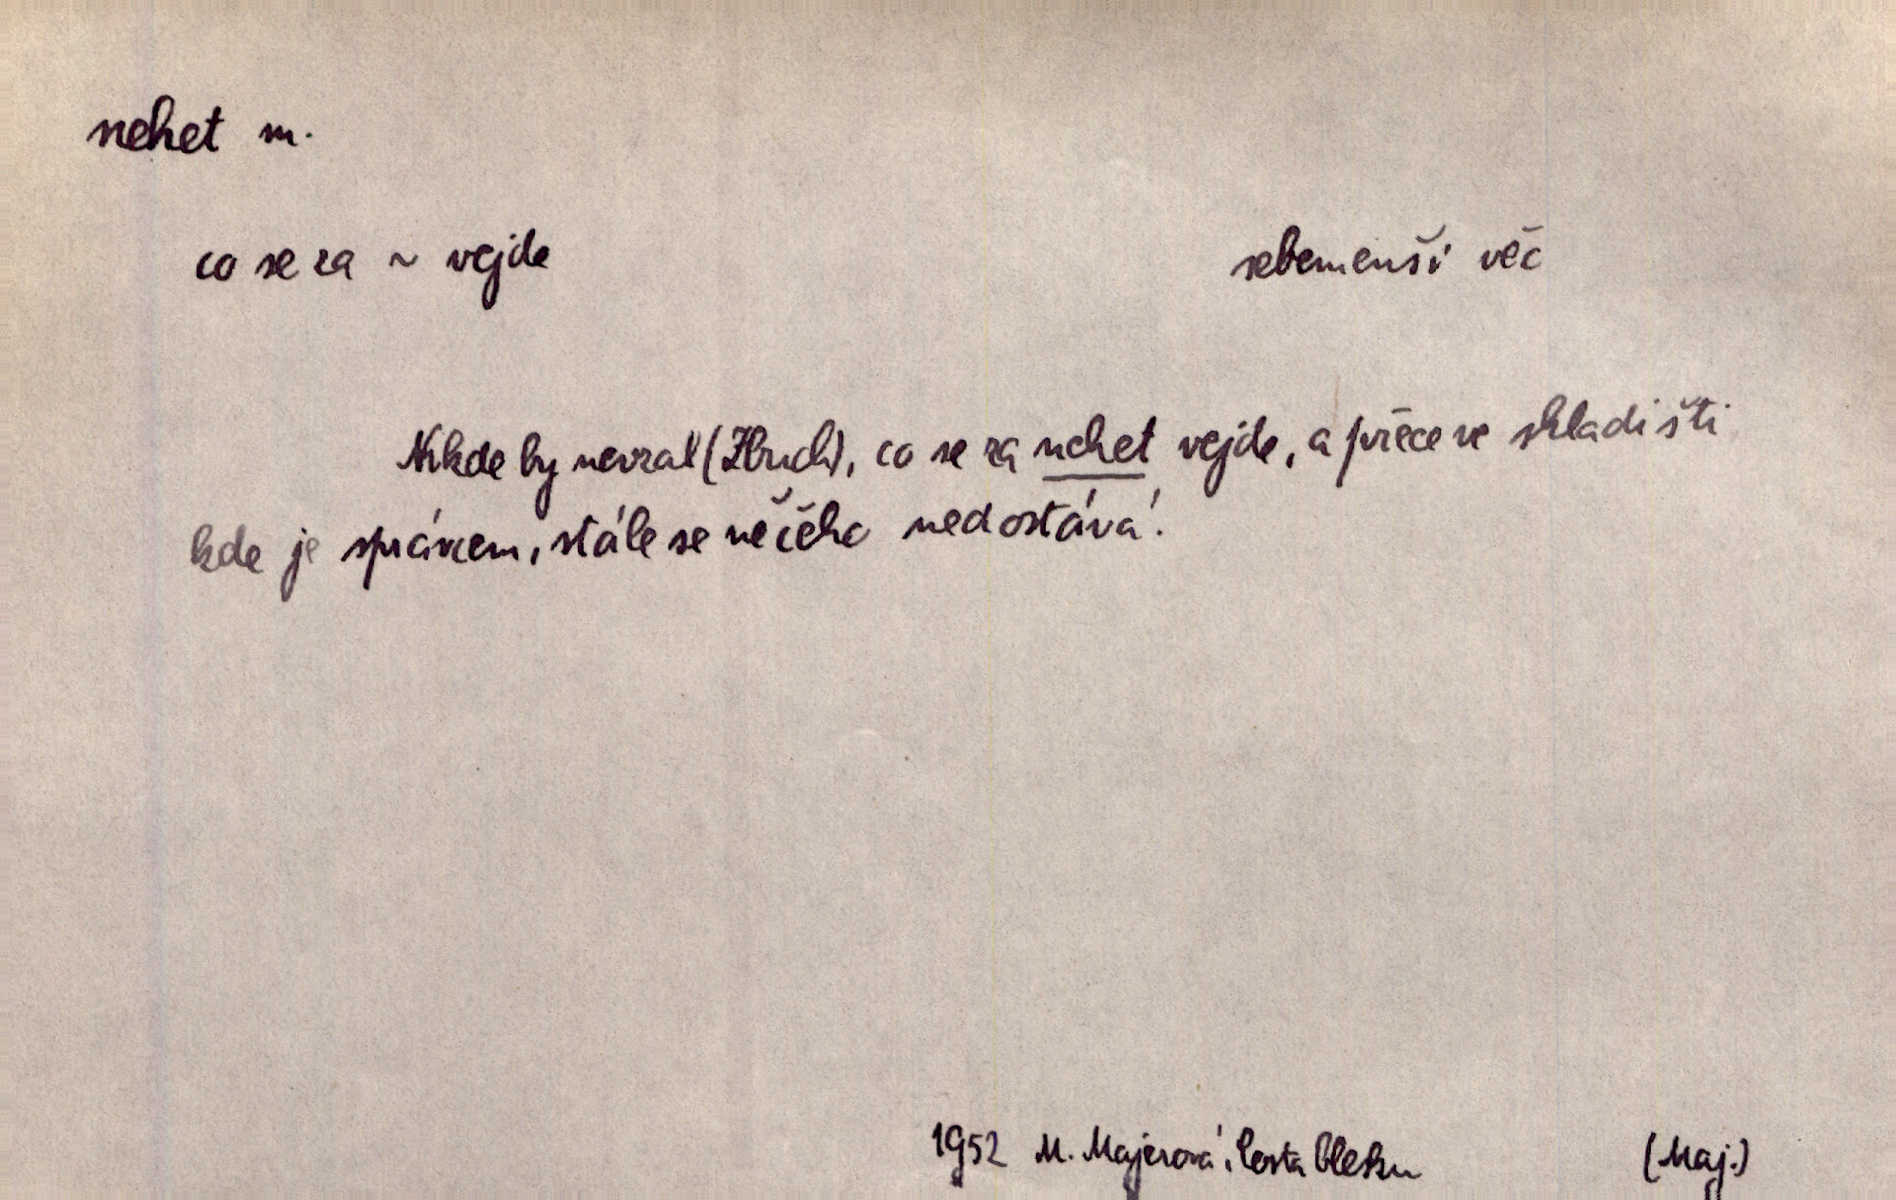 nehet m.
co se za ~ vejde sebemenší věc
Nikde by nevzal (Zbuch), co se za nehet vejde, a přece ve skladišti
kde je správcem, stále se něčeho nedostává.
1952 M. Majerová, Cesta blesku (Maj.)